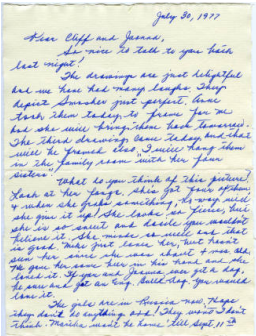 July 30, 1977
Dear Cliff and Joanna,
So nice to talk to you both
last night!
The drawings are just delightful
and we have had many laughs. They
depict Smasher just perfect. Anne
took them today, to frame for me
and she will bring them back tomorrow.
The third drawing came today and that
will be framed also. I will hang them
in the family room "with her four
sisters"
What do you think of this picture!
Look at her fangs, she's got four of them
& when she grabs something, no way will
she give it up! She looks so fierce, but
she is so sweet and docile you wouldn't
believe it. She minds so well and that
is good. Mike just loves her, but hasn't
seen her since she was about
He gave her some in his hand and she
loved it. If you and Joanna ever get a dog,
be sure and get an Eng. Bull dog, you would
love it.
The girls are in Russia now, hope
they don't do anything bad! They won't I don't
think. Marsha won't be home till Sept. 11